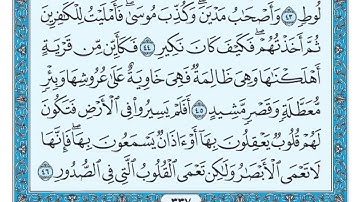 لُوطٍ ٤٣ وَأَصْحَٰبُ مَدْيَنَ ۖ وَكُذِّبَ مُوسَىٰ فَأَمْلَيْتُ لِلْكَٰفِرِينَ
ثُمَّ أَخَذْتُهُمْ ۖ فَكَيْفَ كَانَ نَكِيرِ ٤٤ فَكَأَيِّن مِّن قَرْيَةٍ
أَهْلَكْنَٰهَا وَهِيَ ظَالِمَةٌ فَهِيَ خَاوِيَةٌ عَلَىٰ عُرُوشِهَا وَبِئْرٍ
مُّعَطَّلَةٍ وَقَصْرٍ مَّشِيدٍ ٤٥ أَفَلَمْ يَسِيرُوا۟ فِى ٱلْأَرْضِ فَتَكُونَ
لَهُمْ قُلُوبٌ يَعْقِلُونَ بِهَآ أَوْ ءَاذَانٌ يَسْمَعُونَ بِهَا ۖ فَإِنَّهَا
لَا تَعْمَى ٱلْأَبْصَٰرُ وَلَٰكِن تَعْمَى ٱلْقُلُوبُ ٱلَّتِى فِى ٱلصُّدُورِ ٤٦
٣٣٧